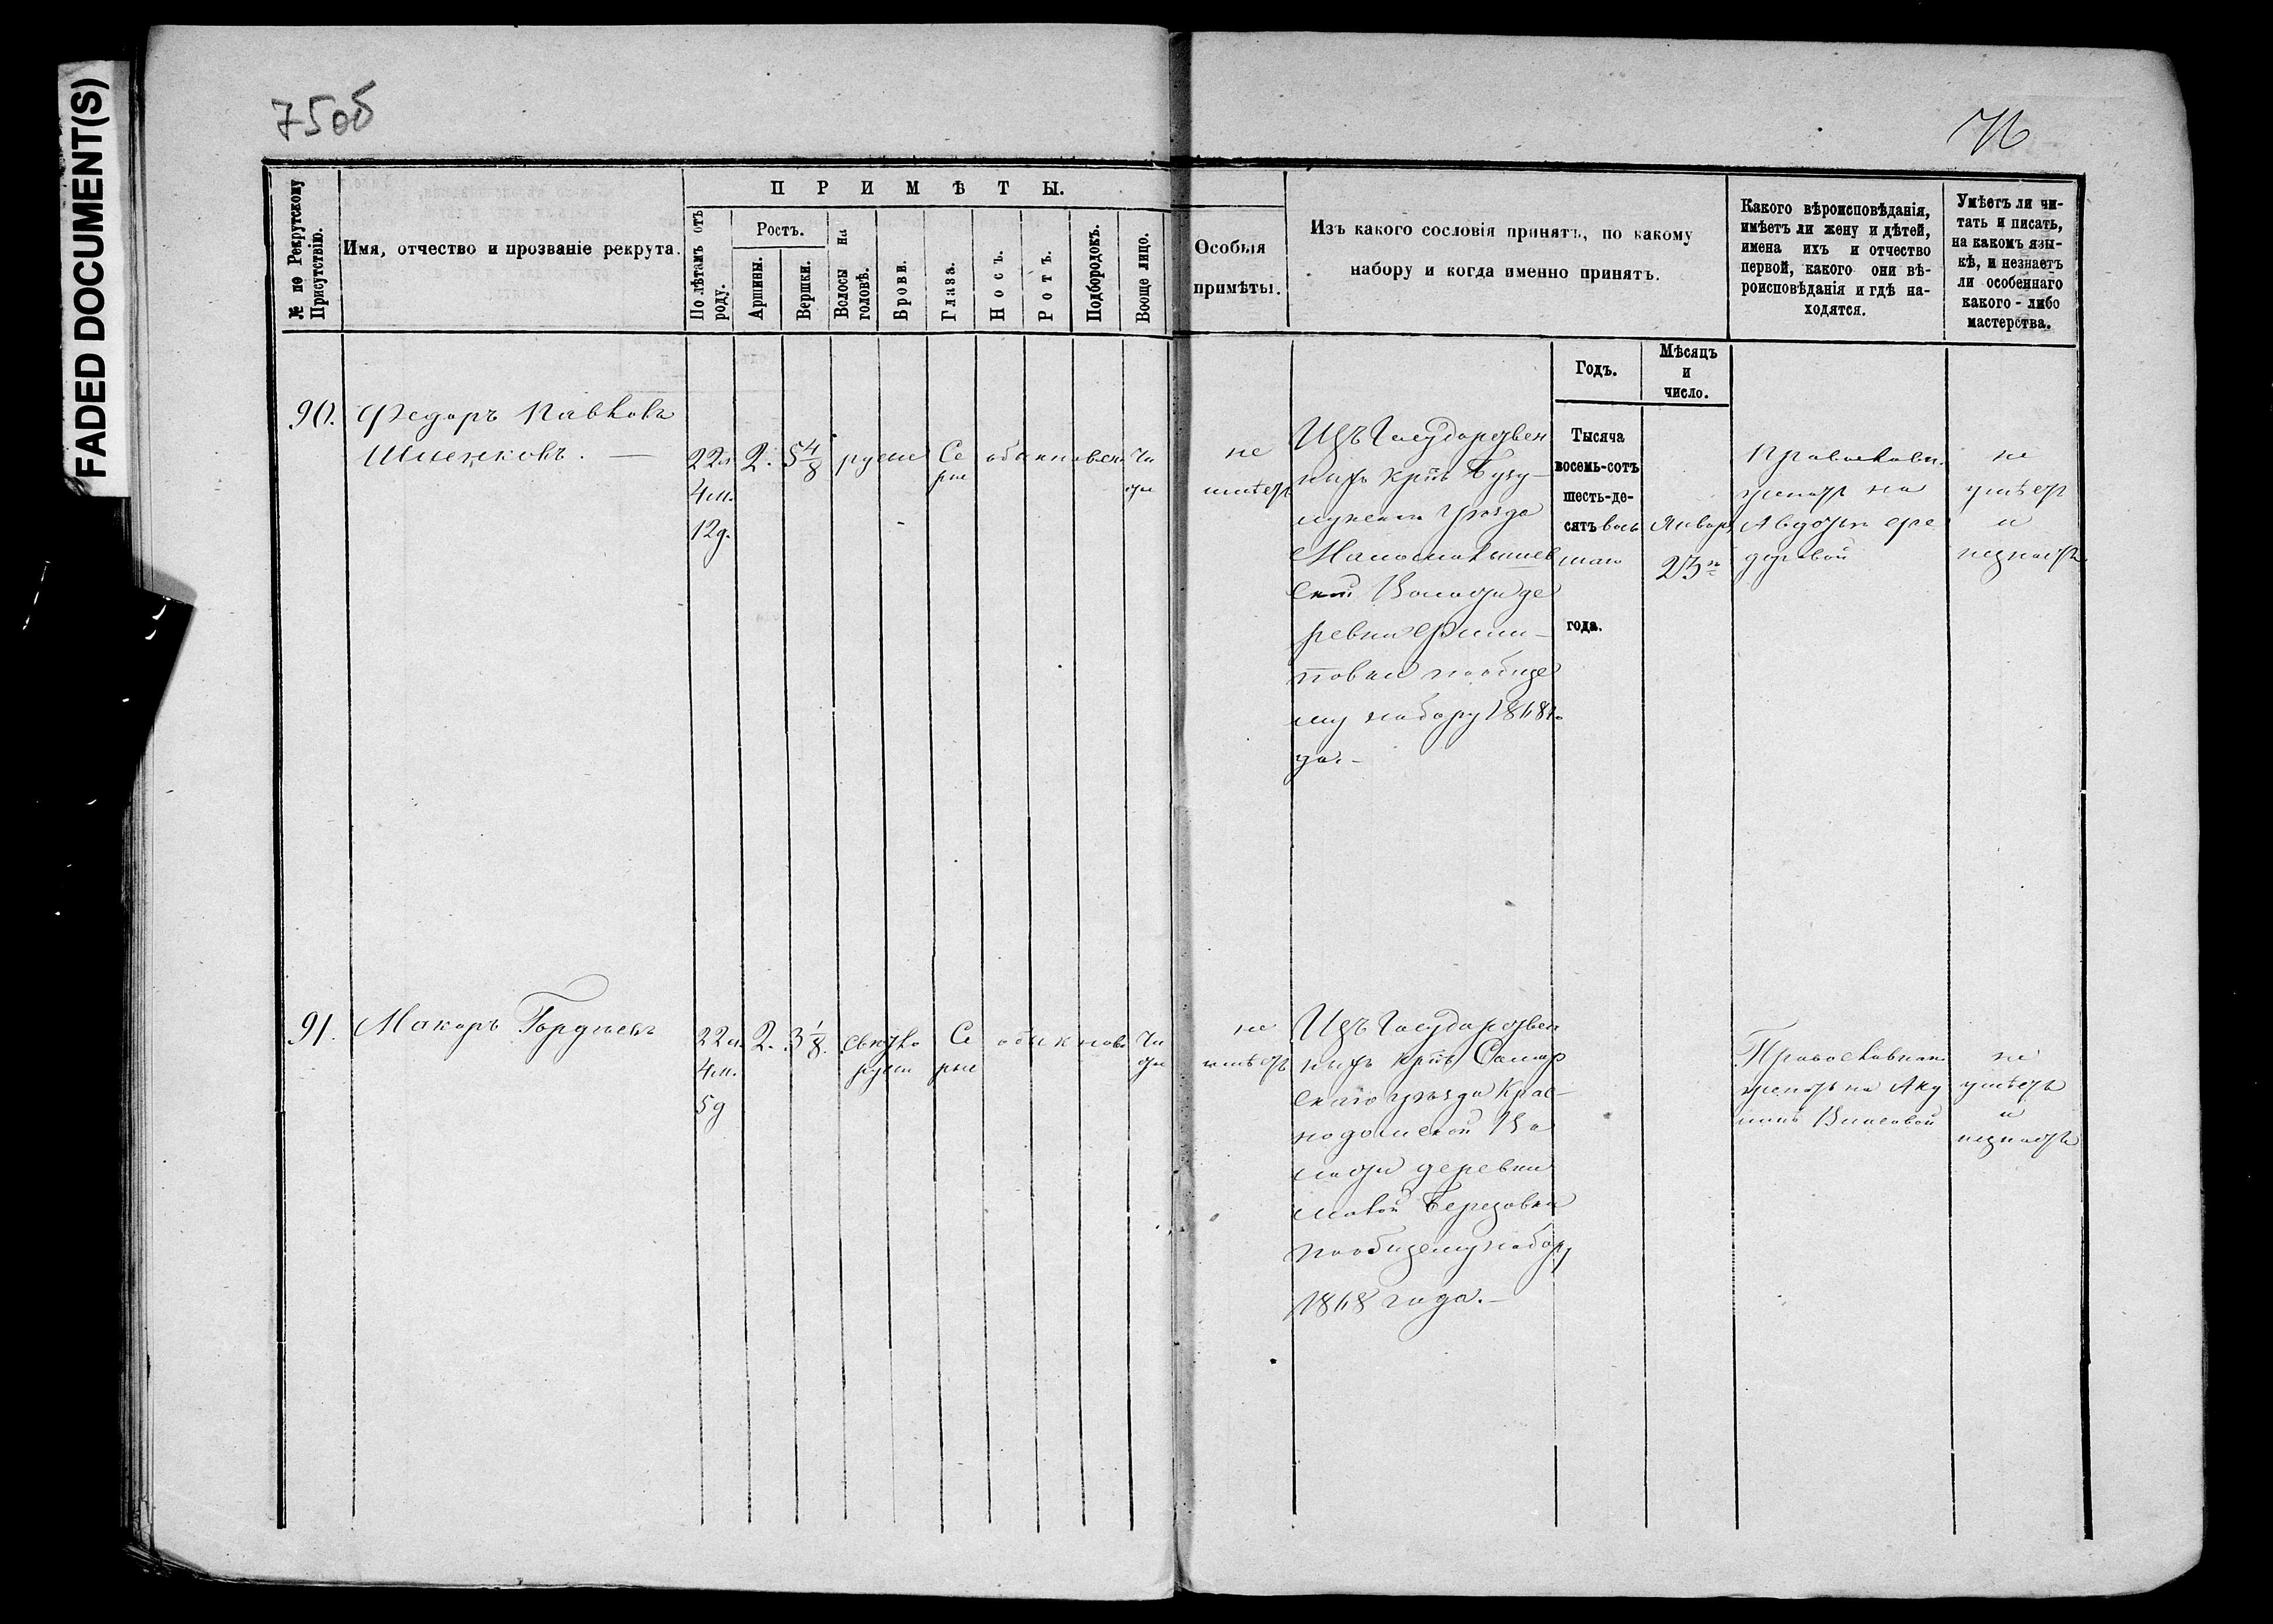 FADED DOCUMENT(S)
75об
76
№ по Рекрутскому
Присутствію.
Имя, отчество и прозваніе рекрута.
ПРИМѢТЫ.
По лѣтамъ отъ
роду.
Ростъ.
Аршины.
Вершки.
Волосы на
головѣ.
Брови.
Глаза.
Носъ.
Ротъ.
Подбородокъ.
Вооще лицо.
Особыя
примѣты.
Изъ какого сословія принятъ, по какому
набору и когда именно принятъ.
Какого вѣроисповѣданія,
имѣетъ ли жену и дѣтей,
имена ихъ и отчество
первой, какого они вѣ-
роисповѣданія и гдѣ на-
ходятся.
Умѣетъ ли чи-
тать и писать,
на какомъ язы-
кѣ, и незнаетъ
ли особеннаго
какого-либо
мастерства.
Годъ.
Мѣсяцъ
и
число.
90. Федоръ Павловъ
22л
4м.
12д.
2.
5 4/8
русые
Се
рые
обыкновен
Чи
стое
не
имѣетъ
Изъ Государствен
ныхъ крнъ Бузу-
лукскаго уѣзда
ской Волости де
ревни
повки пообще
му набору 1868 го
да.-
Тысяча
восемь-сотъ
шесть-де-
сятъ вось
маго
года.
Января
23го
Православн.
женатъ на
Авдотьи
не
умѣетъ
и
незнаетъ
91. Макаръ Гордѣевъ
22л.
4м.
5д
2.
3 1/8.
свѣтло
русые
Се
рые
обыкнове
Чи
стое
не
имѣетъ
Изъ Государствен
ныхъ крнъ Самар
скаго уѣзда Крас-
нодомской Во
лости деревни
малой Березовки
пообщему набору
1868 года.-
Православнаго
женатъ на Аку
линѣ Власовой
не
умѣетъ
и
незнаетъ